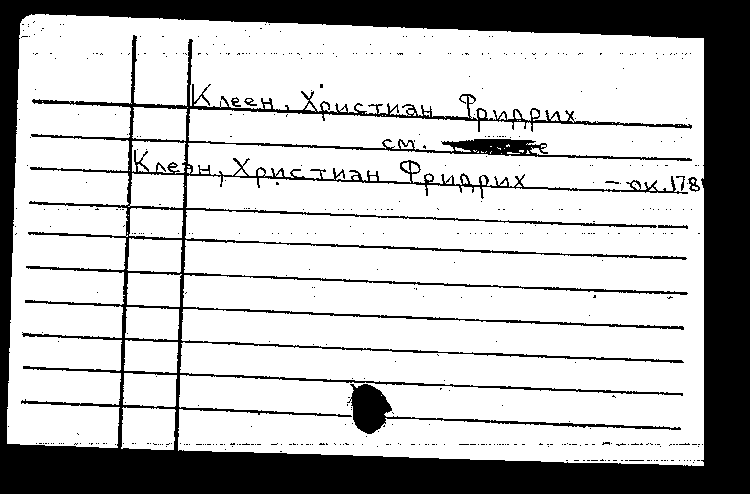 Клеен, Христиан Фридрих
см.
Клеэн, Христиан Фридрих – ок. 178